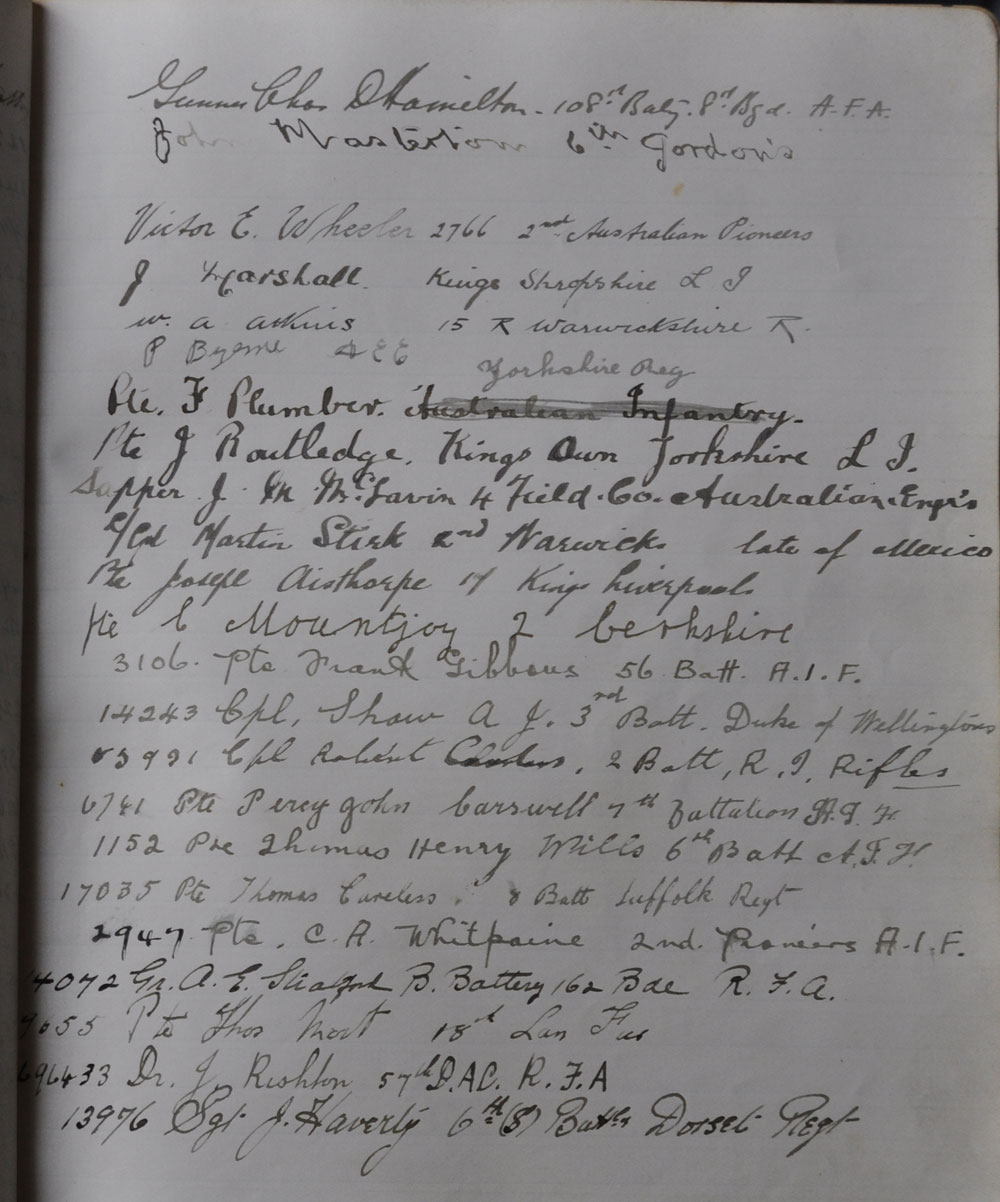 Gunner Chas D Hamilton - 108th Baty. 8th Bgd. A.F.A.
John Masterton 6th Gordon's
Victor E. Wheeler 2766 2nd Australian Pioneers
J Marshall. Kings Shropshire L I
W. A Atkins 15 R Warwickshire R.
P Byrne
Yorkshire Reg
Pte. F Plumber. Australian Infantry.
Pte J Routledge. Kings Own Yorkshire L I.
Sapper J. M McGavin 4 Field. Co. Australian Engr's
L/Cpl Martin Stirk 2nd Warwicks late of Mexico
Pte Joseph Aisthorpe 17 Kings Liverpools
Pte C Mountjoy 2 berkshire
3106. Pte Frank Gibbons 56 Batt. A.I.F.
14243 Cpl, Shaw A J. 3rd Batt. Duke of Wellingtons
Cpl Robert 2 Batt, R, I, Rifles
6781 Pte Percy John Carswell 7th Battalion A.I.F
1152 Pte Thomas Henry Wills 6th Batt A.I.F
17035 Pte Thomas Careless. 8 Batt Suffolk Regt
2947 Pte. C.A. Whitpaine 2nd. Pioneers A.I.F.
4072 Gr. A. E. B. Battery 162 Bde R. F. A.
9655 Pte Thos Mort 18th Lan Fus
696433 Dr. J. Rishton 57th D.A.C. R. F. A
13976 Sgt J. Haverty 6th (S) Battn Dorset Regt